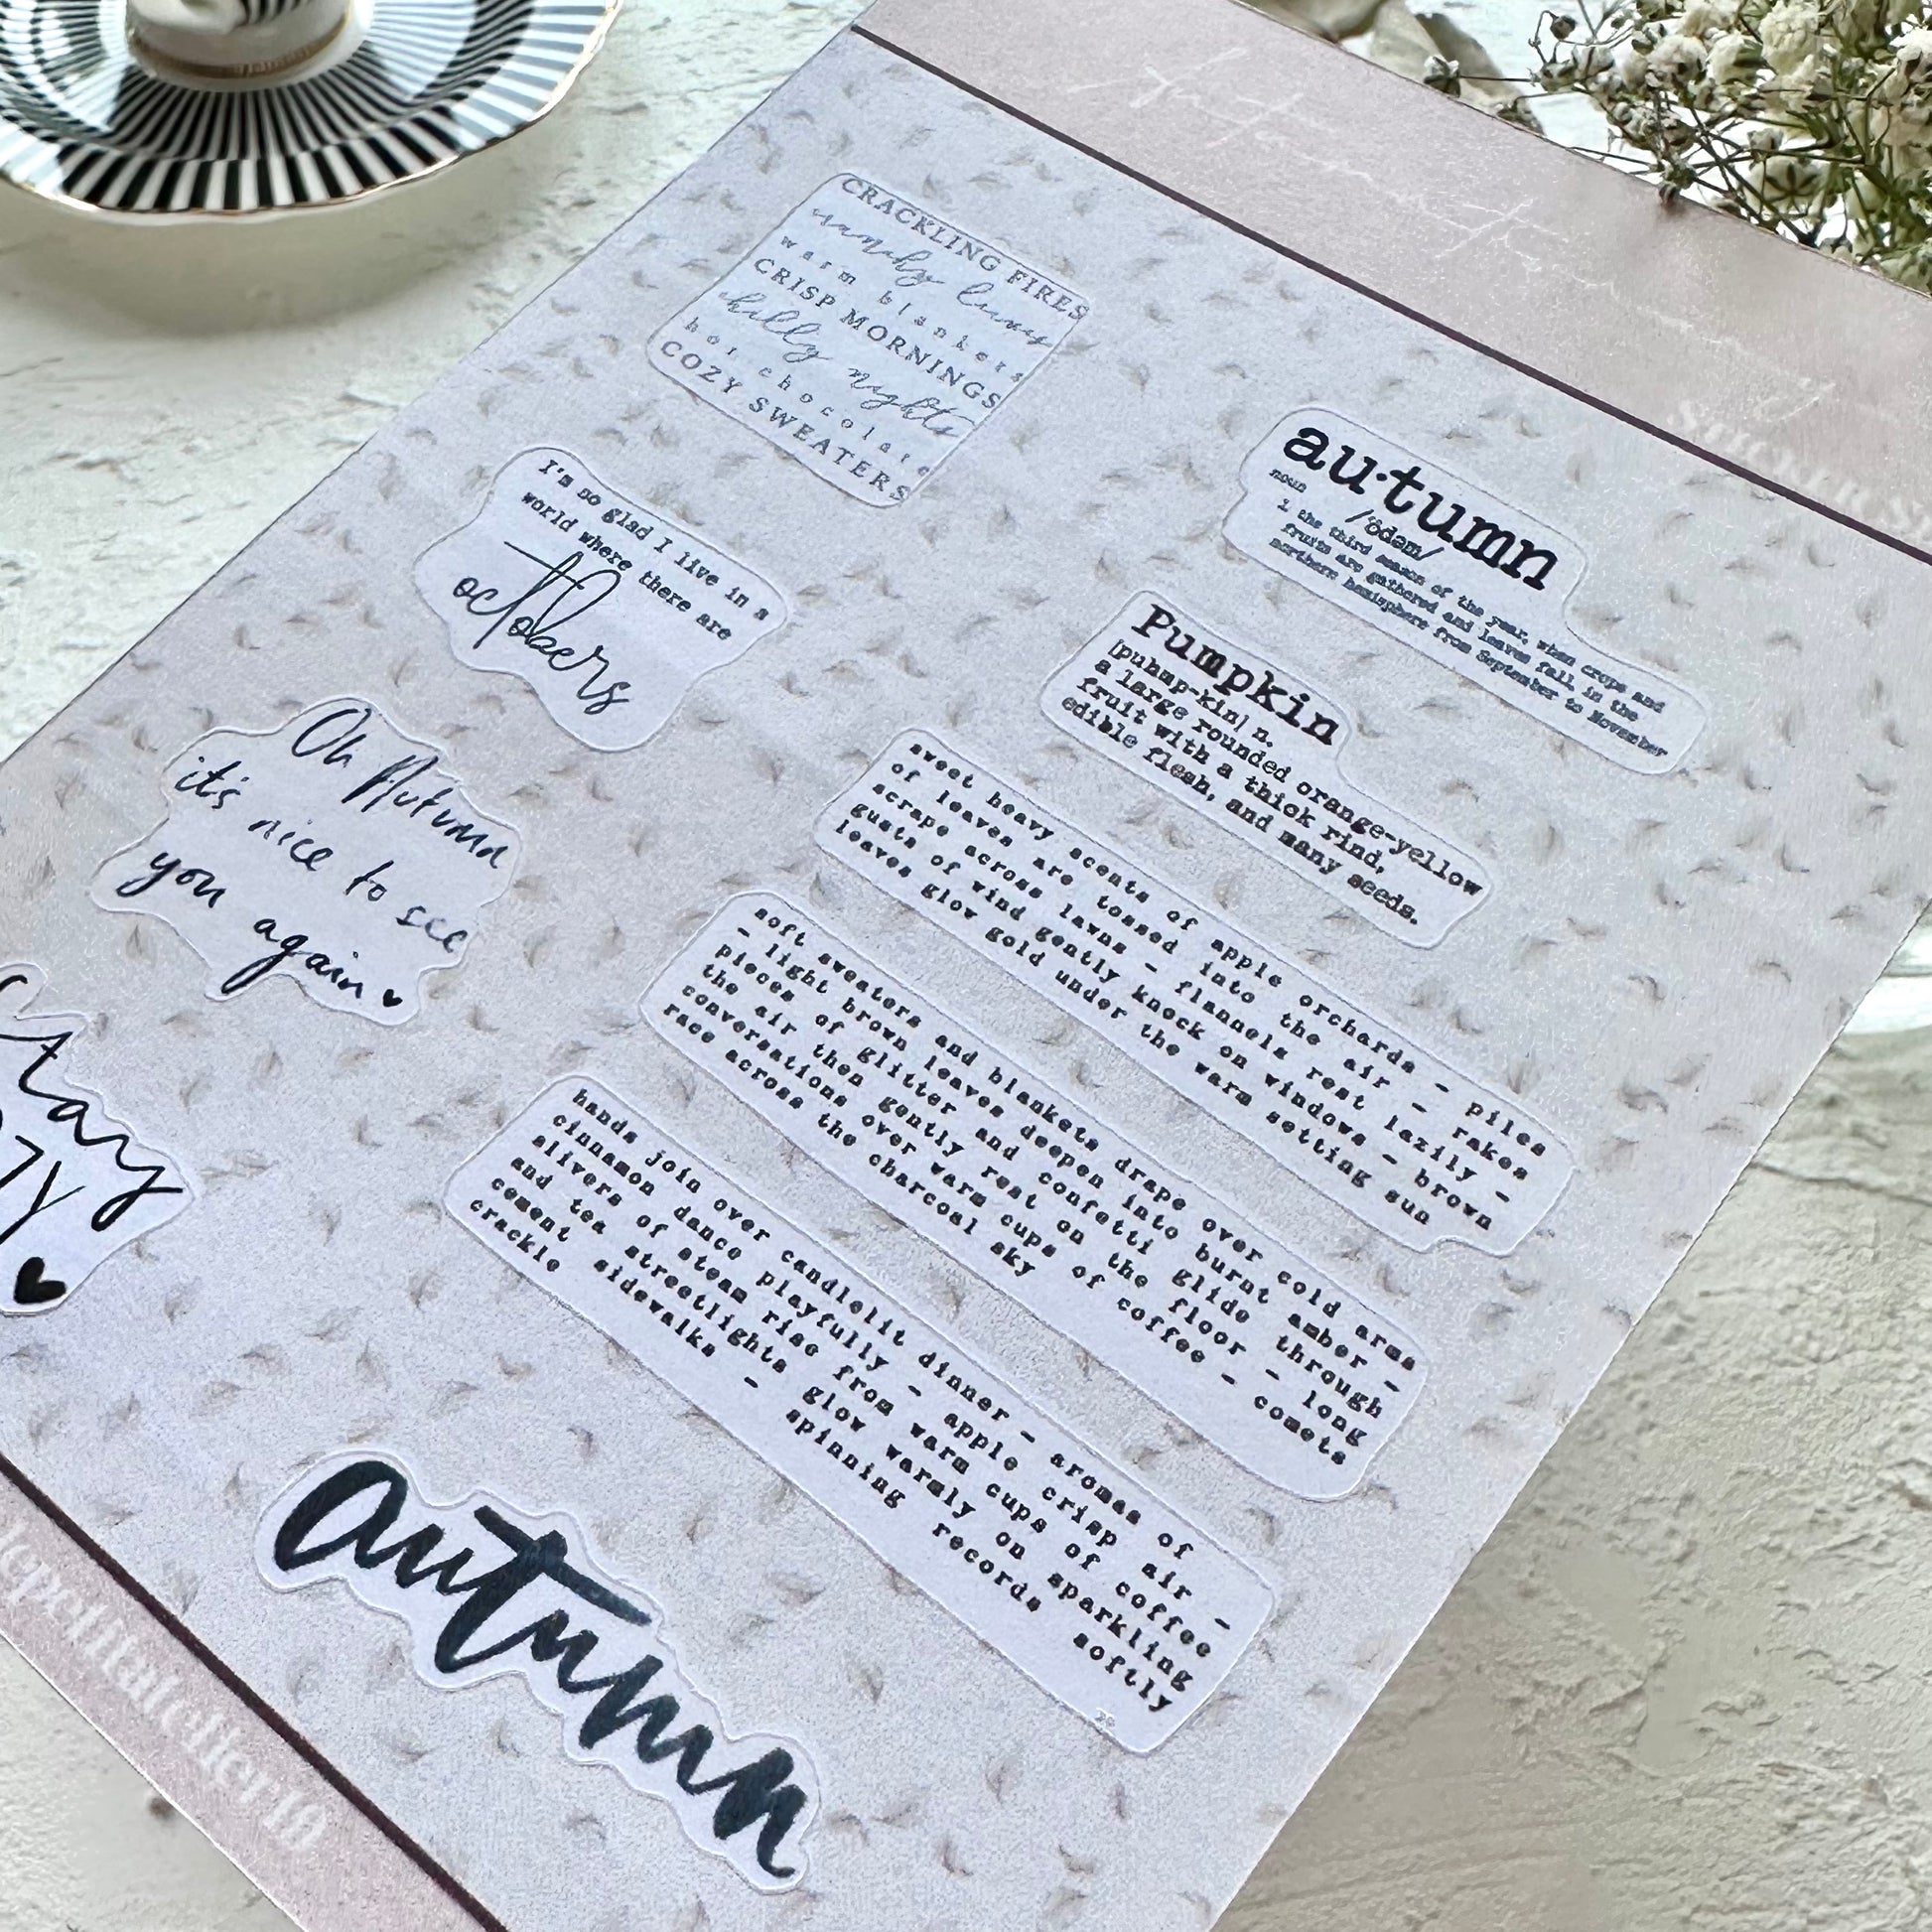 CRACKLING FIRES
warm blankets
CRISP MORNINGS
chilly nights
hot chocolate
COZY SWEATERS
au·tumn
noun /ˈôdəm/
1 the third season of the year, when crops and
fruits are gathered and leaves fall, in the
northern hemisphere from September to November
I'm so glad I live in a
world where there are
octobers
Pumpkin
[puhmp-kin] n.
a large rounded orange-yellow
fruit with a thick rind,
edible flesh, and many seeds.
Oh Autumn
it's nice to see
you again
sweet heavy scents of apple orchards - piles
of leaves are tossed into the air - rakes
scrape across lawns - flannels rest lazily -
gusts of wind gently knock on windows - brown
leaves glow gold under the warm setting sun
soft sweaters and blankets drape over cold arms
- light brown leaves deepen into burnt amber -
pieces of glitter and confetti glide through
the air then gently rest on the floor - long
conversations over warm cups of coffee - comets
race across the charcoal sky
Stay
hands join over candlelit dinner - aromas of
cinnamon dance playfully - apple crisp air -
slivers of steam rise from warm cups of coffee
and tea streetlights glow warmly on sparkling
cement sidewalks - spinning records softly
crackle
autumn